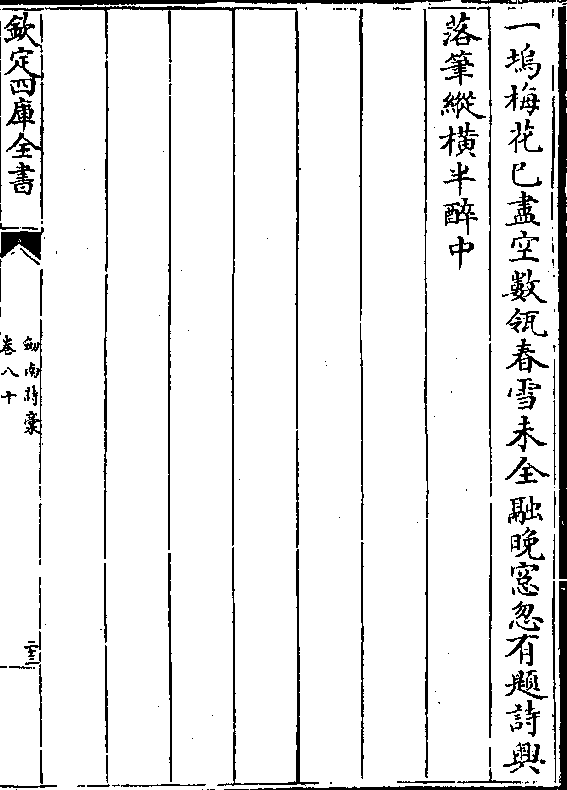 一塢梅花已盡空數瓴春雪未全融晩窓忽有題詩興
落筆縱橫半醉中
欽定四庫全書
劒南詩稾
卷八十
二十三